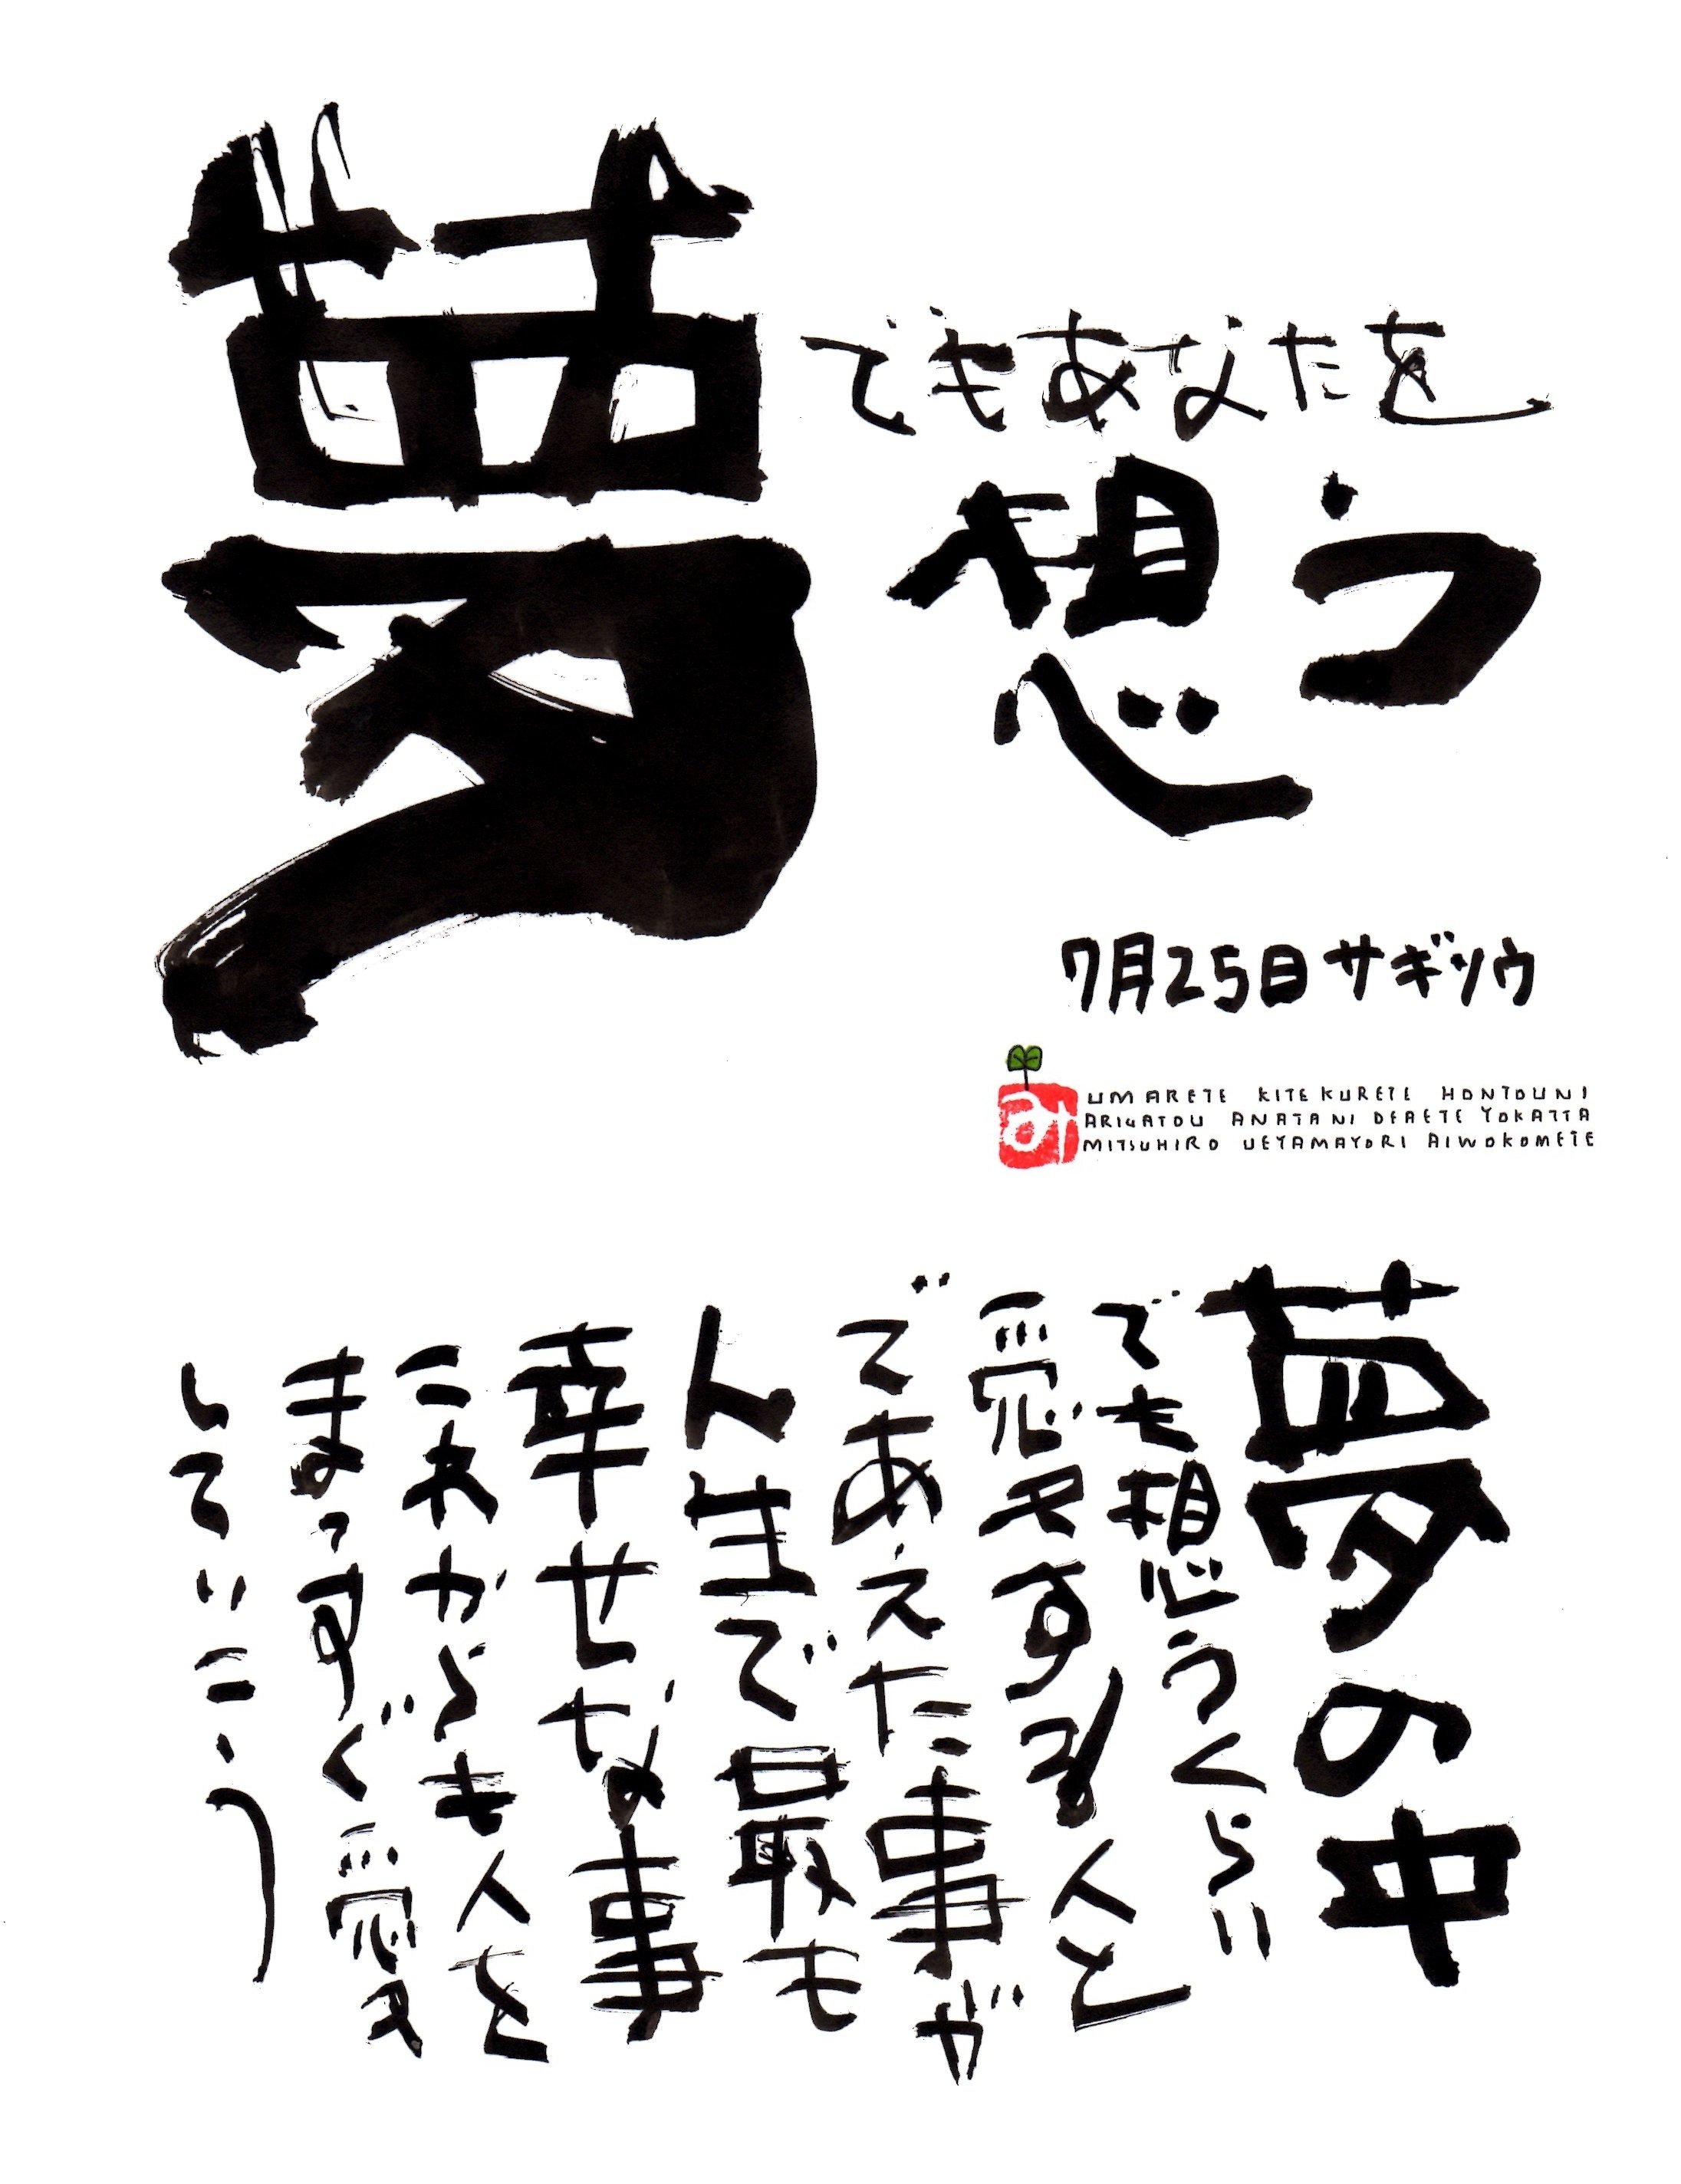 夢でもあなたを
想う
7月25日サギソウ
UMARETE KITEKURETE HONTOUNI
ARIGATOU ANATANI DEAETE YOKATTA
MITSUHIRO UEYAMAYORI AIWOKOMETE
夢の中
でも想うくらい
愛する人と
であえた事が
人生で最も
幸せな事
これからも人を
まっすぐ愛
していこう